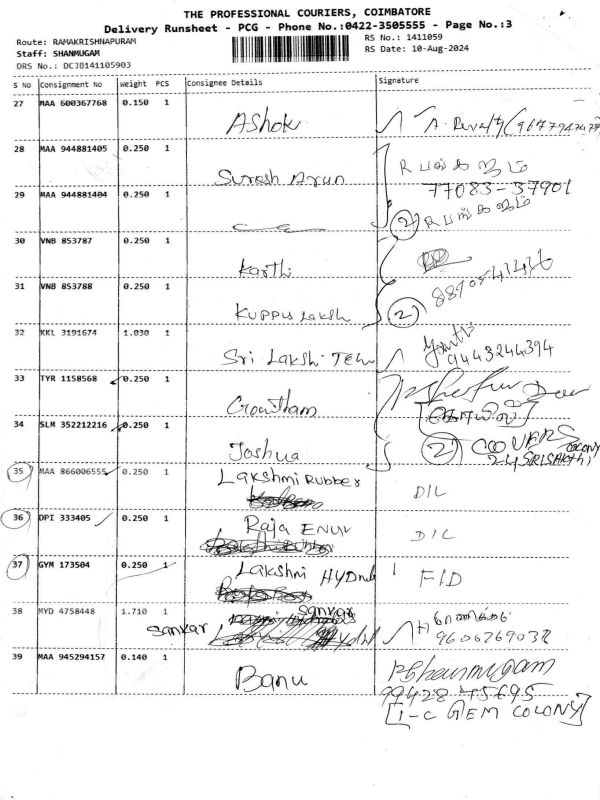 THE PROFESSIONAL COURIERS, COIMBATORE
Delivery Runsheet - PCG - Phone No.:0422-3505555 - Page No.:3
Route: RAMAKRISHNAPURAM
Staff: SHANMUGAM
DRS No.: DCJB141105903
RS No.: 1411059
RS Date: 10-Aug-2024
S No Consignment No Weight PCS Consignee Details Signature
27 MAA 600367768 0.150 1 Ashok
28 MAA 944881405 0.250 1 Suresh Arun
77083-37901
29 MAA 944881404 0.250 1 (2)
30 VNB 853787 0.250 1 Karthi
31 VNB 853788 0.250 1 Kuppus Laksh (2)
32 KKL 3191674 1.030 1 Sri Lakshi
9443244394
33 TYR 1158568 0.250 1 Gowtham
34 SLM 352212216 0.250 1 Joshua (2)
35 MAA 866006555 0.250 1 Lakshmi Rubber D/L
36 DPI 333405 0.250 1 Raja D/L
37 GYM 173504 0.250 1 Lakshmi F/D
38 MYD 4758448 1.710 1 Sankar
39 MAA 945294157 0.140 1 Banu P Shanmugam
99428 45695
[1-C GEM COLONY]